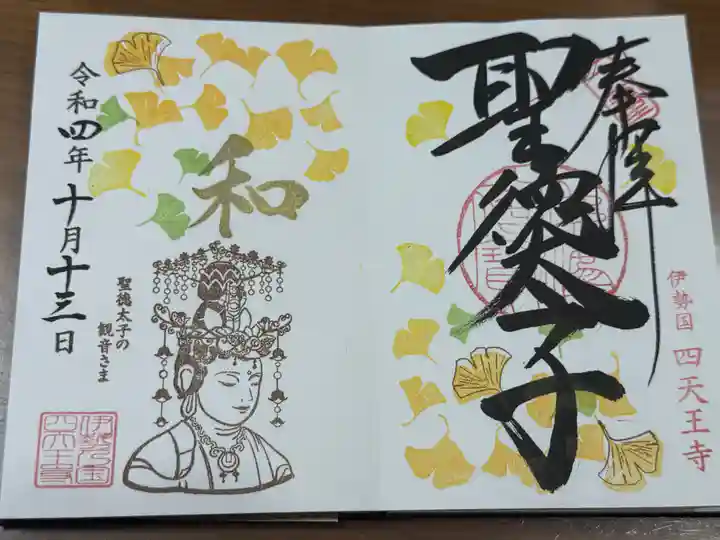 奉拝
聖徳太子
伊勢国 四天王寺
和
令和四年 十月十三日
聖徳太子の
観音さま
伊勢之国
四天王寺